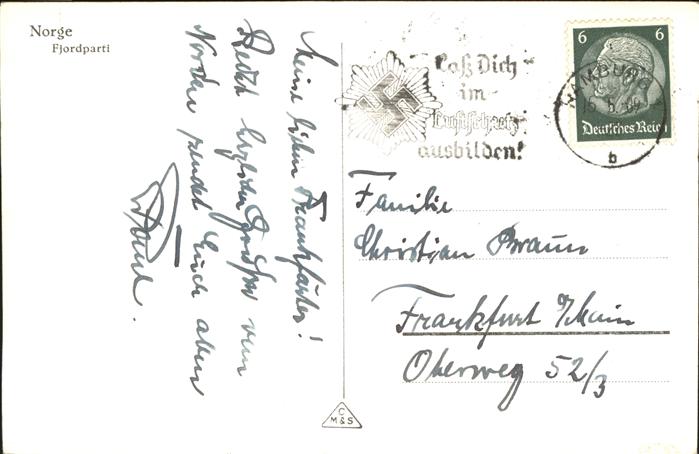 Norge
Fjordparti
Meine lieben Frankfurter!
Recht herzliche Grüße vom
Norden sendet Euch allen
Laß Dich
im
Luftschutz
ausbilden!
HAMBURG
b
6 6
Deutsches Reich
Familie
Christian Braun
Frankfurt a/Main
Oberweg 52/3
C
M&S